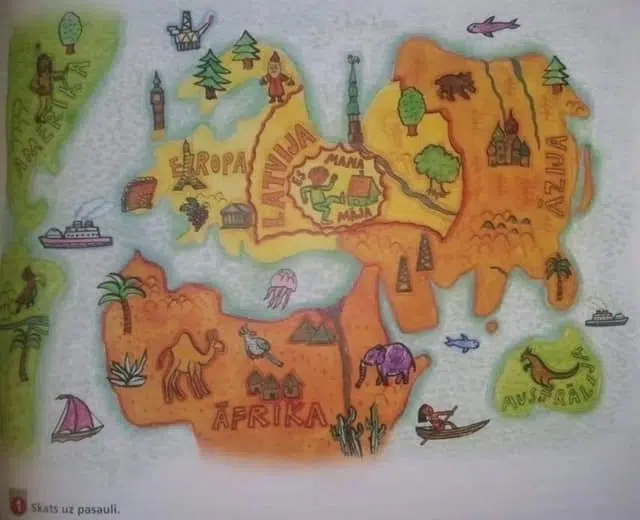 AMERIKA
EIROPA
LATVIJA
ES
MANA
MĀJA
ĀZIJA
ĀFRIKA
AUSTRĀLIJA
1 Skats uz pasauli.